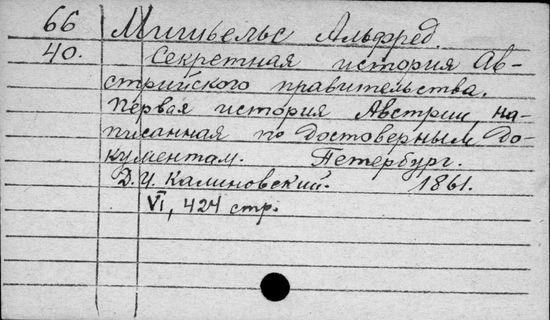 66 Мишьельс Альфред.
40. Секретная история Ав-
стрийского правительства.
Первая история Австрии, на-
писанная по достоверным до-
кументам. Петербург.
Д. И. Калиновский. 1861.
VI, 424 стр.